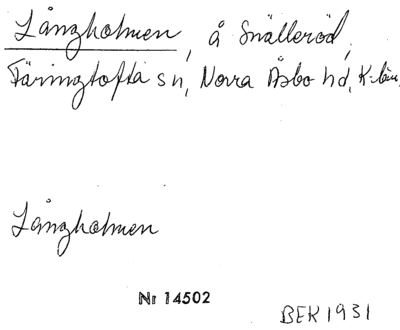 Långholmen, å Snälleröd,
Färingtofta sn, Norra Åsbo hd, K-län.
Långholmen
Nr 14502
BEK 1931